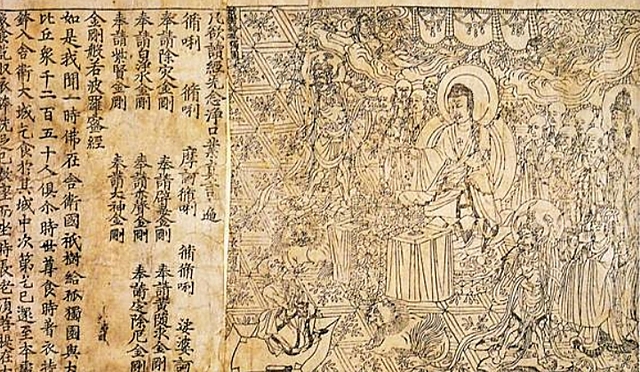 凡欲讀經先念淨口業真言遍
脩唎 脩唎 摩訶脩唎 脩脩唎 娑婆訶
奉請除災金剛 奉請辟毒金剛 奉請黃隨求金剛
奉請白淨水金剛 奉請赤聲金剛 奉請定除厄金剛
奉請紫賢金剛 奉請大神金剛
金剛般若波羅蜜經
如是我聞一時佛在舍衛國祇樹給孤獨園與大
比丘眾千二百五十人俱尒時世尊食時著衣持
鉢入舍衛大城乞食於其城中次第乞已還至本處
飯食訖收衣鉢洗足已敷座而坐時長老須菩提在大